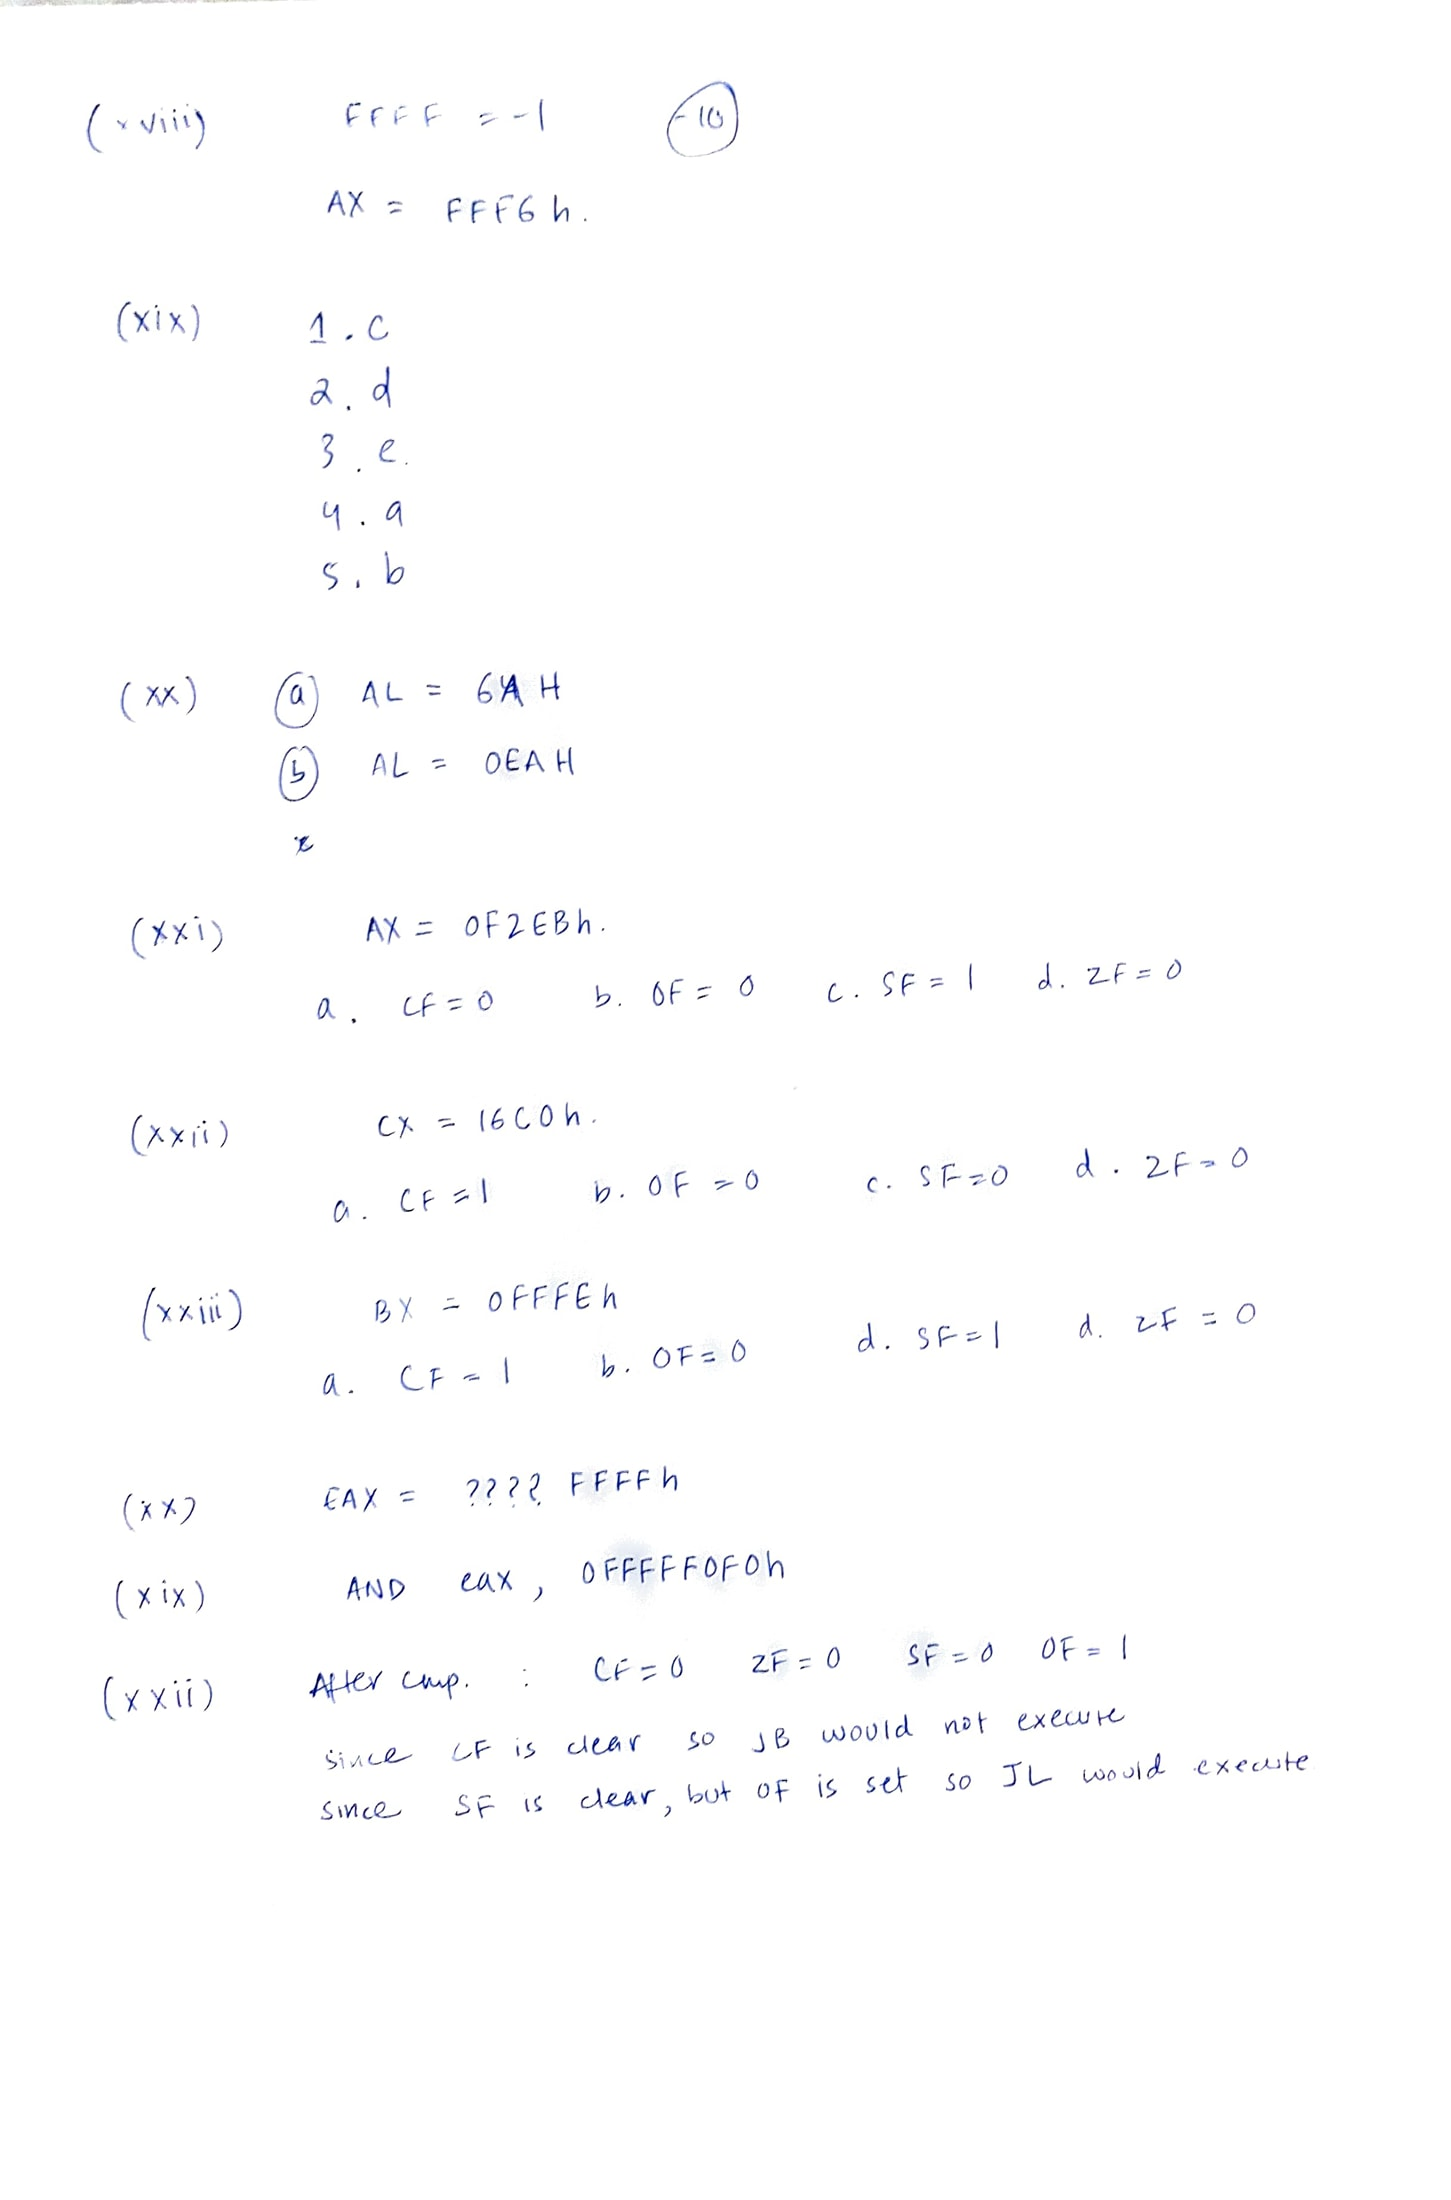 (xviii) FFFF = -1 -10
AX = FFF6 h.
(xix) 1. c
2. d
3. e.
4. a
5. b
(xx) (a) AL = 6A H
(b) AL = 0EA H
(xxi) AX = 0F2EBh.
a. CF = 0 b. OF = 0 c. SF = 1 d. ZF = 0
(xxii) CX = 16C0h.
a. CF = 1 b. OF = 0 c. SF = 0 d. ZF = 0
(xxiii) BX = 0FFFEh
a. CF = 1 b. OF = 0 d. SF = 1 d. ZF = 0
(xx) EAX = ???? FFFFh
(xix) AND eax, 0FFFFF0F0h
(xxii) After cmp. : CF = 0 ZF = 0 SF = 0 OF = 1
since CF is clear so JB would not execute
since SF is clear, but OF is set so JL would execute